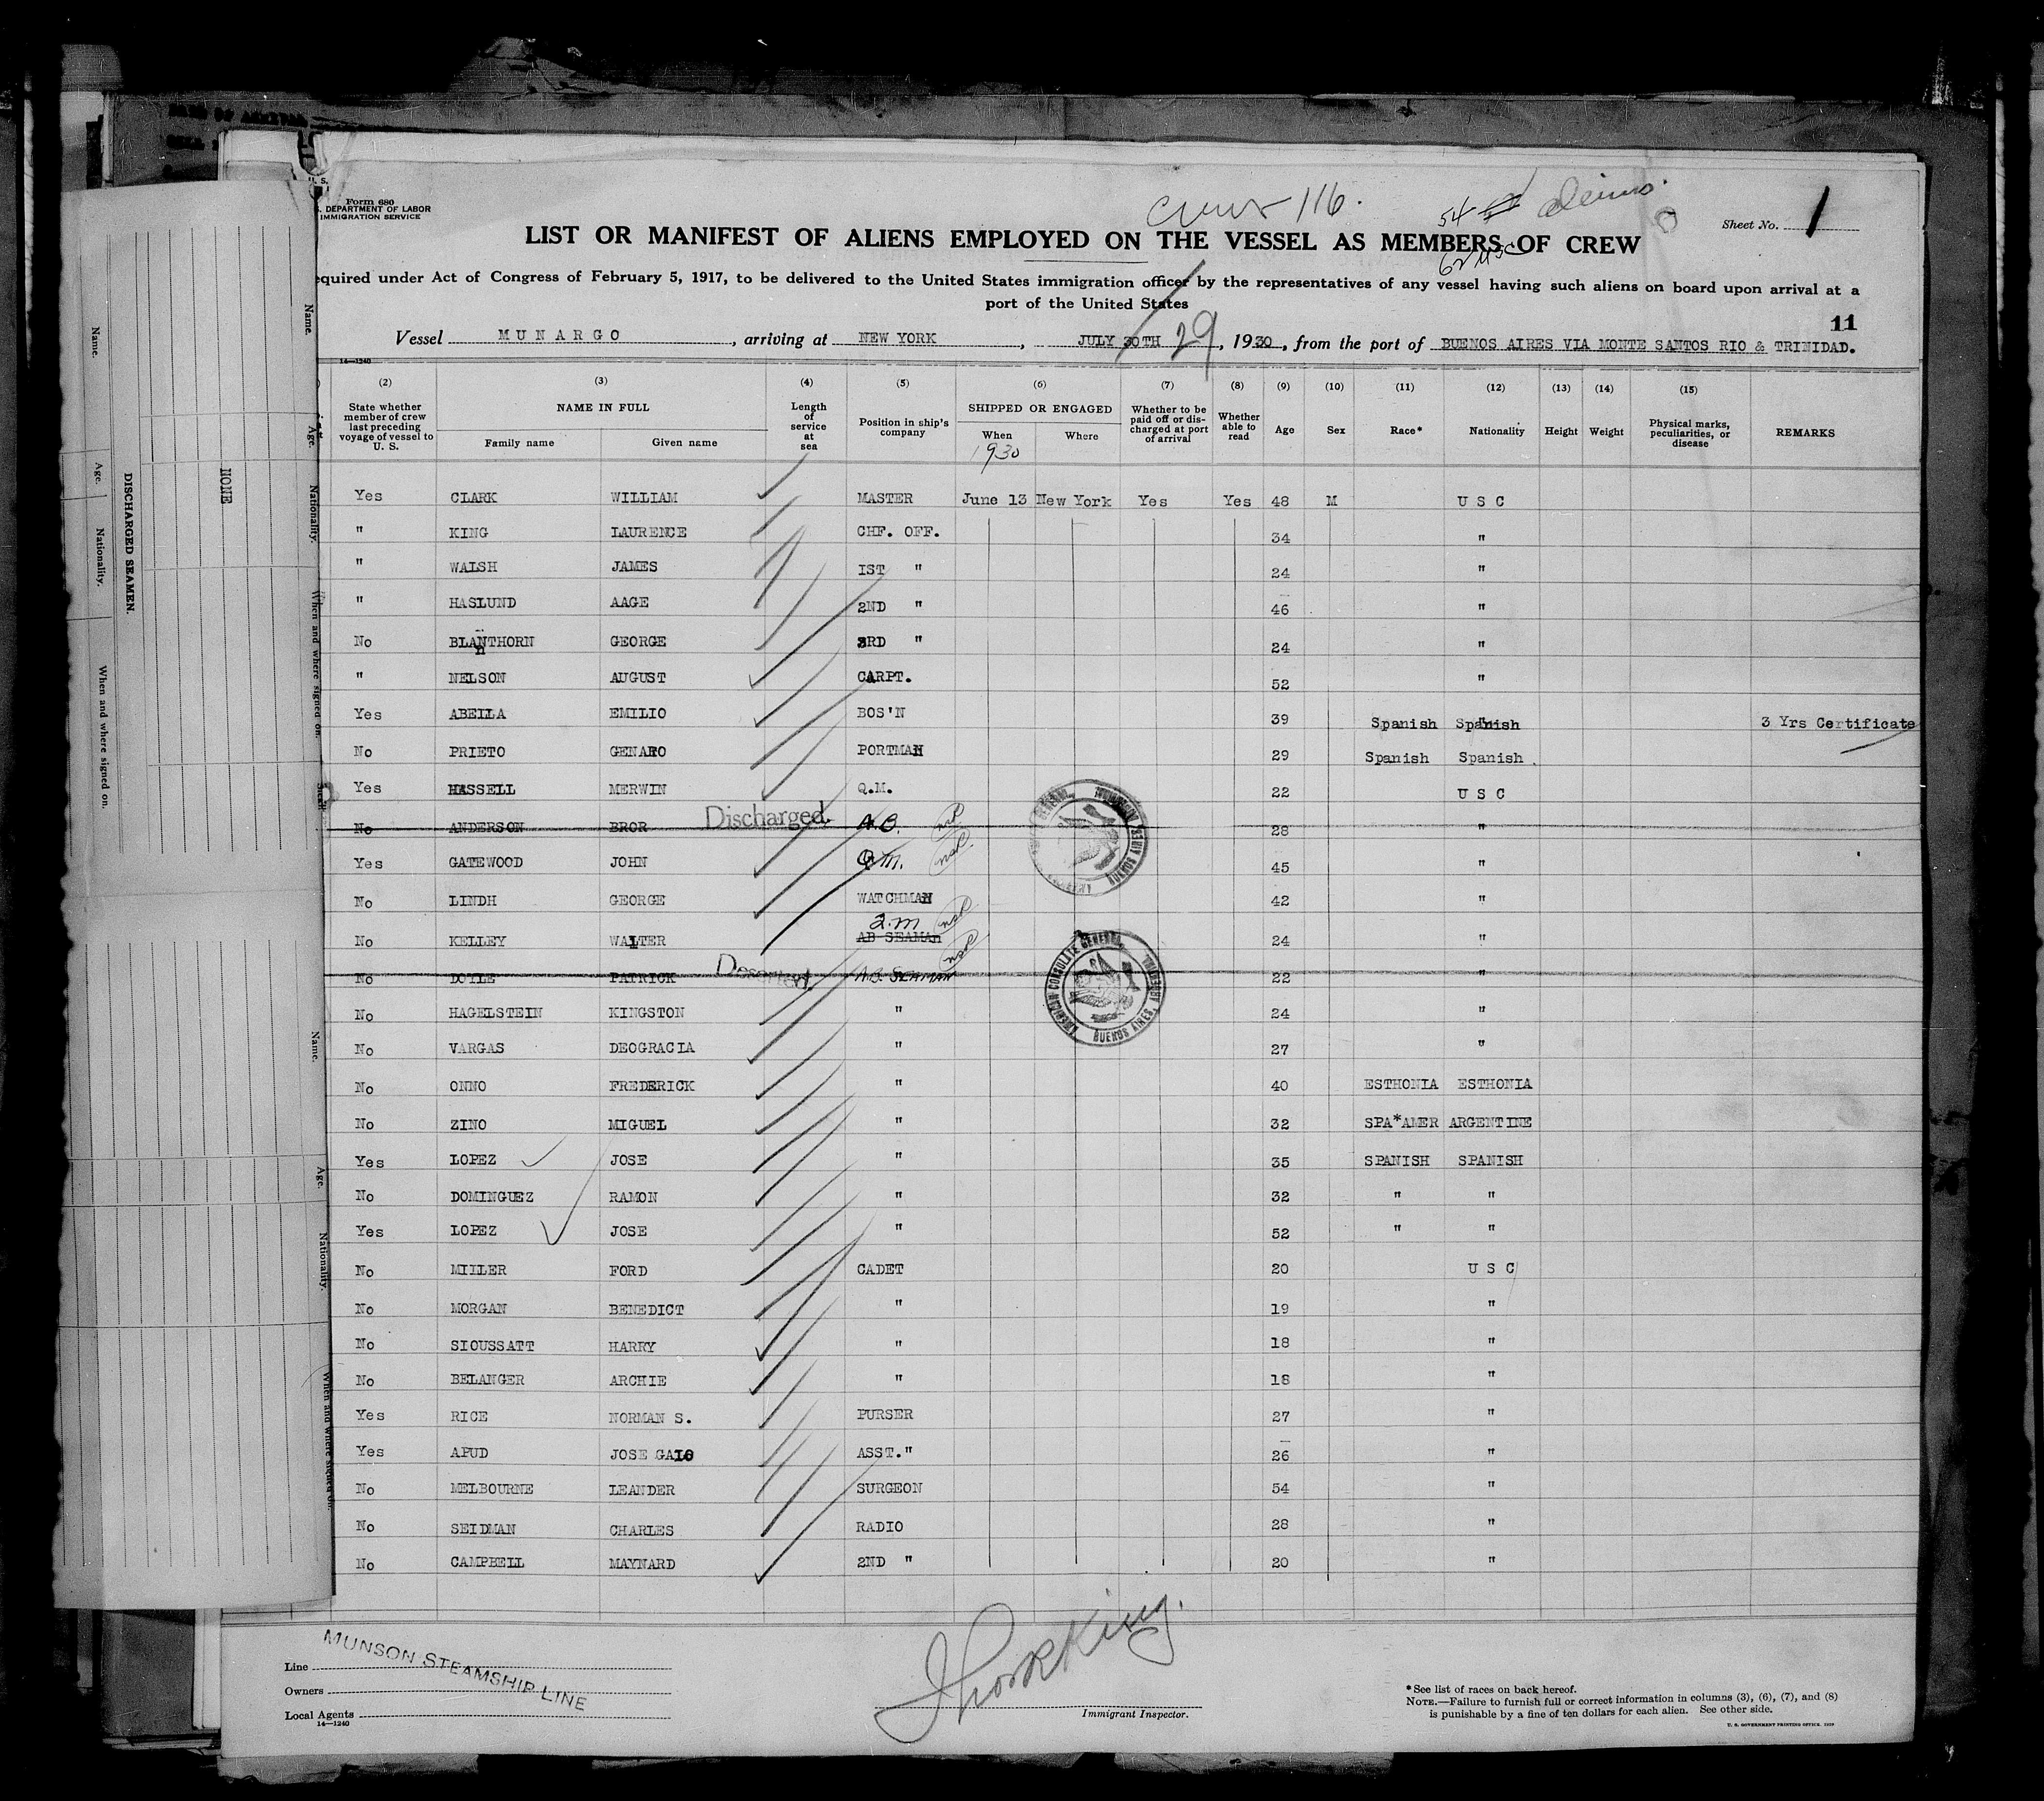 Form 680
U. S. DEPARTMENT OF LABOR
IMMIGRATION SERVICE
Crew 116.
54
62 USC
Sheet No. 1
LIST OR MANIFEST OF ALIENS EMPLOYED ON THE VESSEL AS MEMBERS OF CREW
equired under Act of Congress of February 5, 1917, to be delivered to the United States immigration officer by the representatives of any vessel having such aliens on board upon arrival at a
port of the United States
11
Vessel MUNARGO, arriving at NEW YORK, JULY 30TH 29, 1930, from the port of BUENOS AIRES VIA MONTE SANTOS RIO & TRINIDAD.
14—1240
(2) (3) (4) (5) (6) (7) (8) (9) (10) (11) (12) (13) (14) (15)
State whether member of crew last preceding voyage of vessel to U. S. NAME IN FULL Family name Given name Length of service at sea Position in ship's company SHIPPED OR ENGAGED When Where Whether to be paid off or discharged at port of arrival Whether able to read Age Sex Race* Nationality Height Weight Physical marks, peculiarities, or disease REMARKS
1930
Yes CLARK WILLIAM MASTER June 13 New York Yes Yes 48 M U S C
" KING LAURENCE CHF. OFF. 34 "
" WALSH JAMES IST " 24 "
" HASLUND AAGE 2ND " 46 "
No BLANTHORN GEORGE 3RD " 24 "
n
" NELSON AUGUST CARPT. 52 "
Yes ABELLA EMILIO BOS'N 39 Spanish Spanish 3 Yrs Certificate
No PRIETO GENARO PORTMAN 29 Spanish Spanish
Yes HASSELL MERWIN Q.M. 22 U S C
No ANDERSON BROR Discharged. A.B. 28 "
Yes GATEWOOD JOHN Q.M. 45 "
No LINDH GEORGE WATCHMAN 42 "
Q.M
No KELLEY WALTER AB SEAMAN 24 "
No DOYLE PATRICK Deserted. A.B. SEAMAN 22 "
No HAGELSTEIN KINGSTON " 24 "
No VARGAS DEOGRACIA " 27 "
No ONNO FREDERICK " 40 ESTHONIA ESTHONIA
No ZINO MIGUEL " 32 SPA*AMER ARGENTINE
Yes LOPEZ JOSE " 35 SPANISH SPANISH
No DOMINGUEZ RAMON " 32 " "
Yes LOPEZ JOSE " 52 " "
No MILLER FORD CADET 20 U S C
No MORGAN BENEDICT " 19 "
No SIOUSSATT HARRY " 18 "
No BELANGER ARCHIE " 18 "
Yes RICE NORMAN S. PURSER 27 "
Yes APUD JOSE GALO ASST." 26 "
No MELBOURNE LEANDER SURGEON 54 "
No SEIDMAN CHARLES RADIO 28 "
No CAMPBELL MAYNARD 2ND " 20 "
AMERICAN CONSULATE GENERAL, BUENOS AIRES, ARGENTINA
Line
Owners
Local Agents
14—1240
MUNSON STEAMSHIP LINE
Immigrant Inspector.
*See list of races on back hereof.
NOTE.—Failure to furnish full or correct information in columns (3), (6), (7), and (8)
is punishable by a fine of ten dollars for each alien. See other side.
U. S. GOVERNMENT PRINTING OFFICE. 1929
Name.
Age.
Nationality.
When and where signed on.
DISCHARGED SEAMEN.
NONE
Name.
Age.
Nationality.
When and where signed on.
Name.
Age.
Nationality.
When and where signed on.